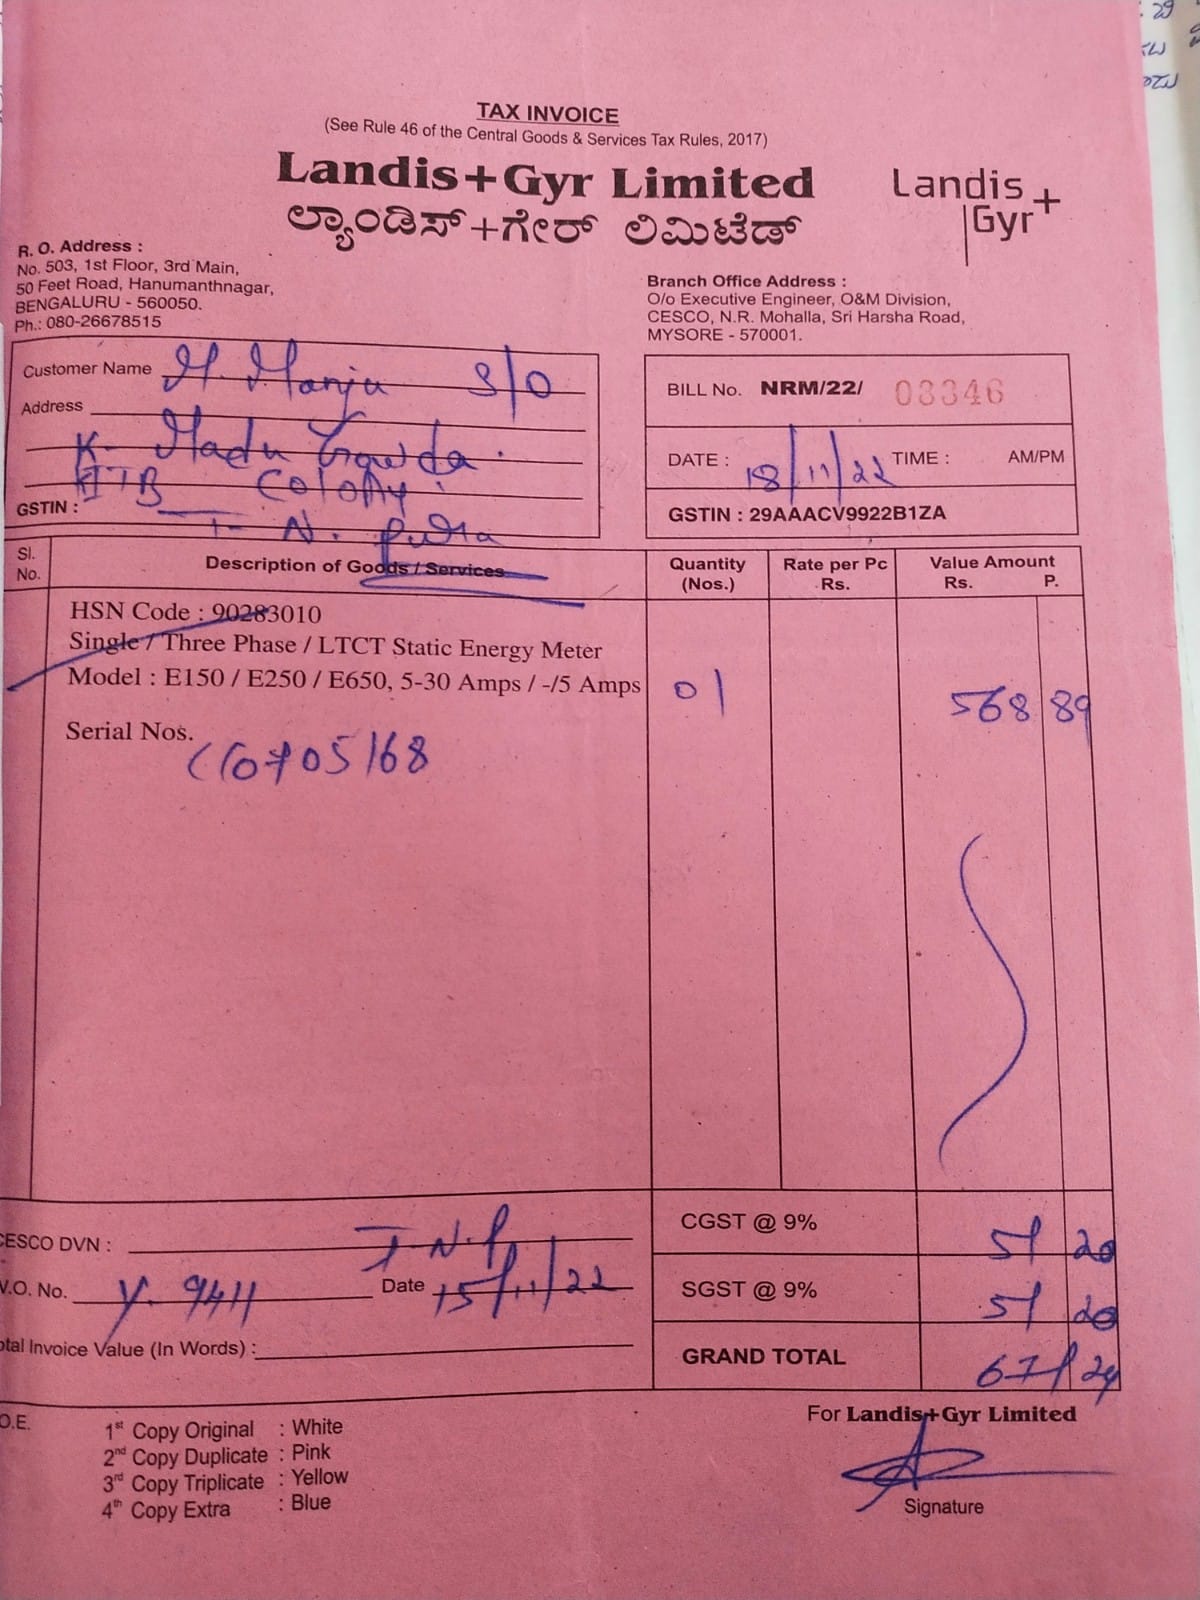 TAX INVOICE
(See Rule 46 of the Central Goods & Services Tax Rules, 2017)
Landis+Gyr Limited
ಲ್ಯಾಂಡಿಸ್+ಗೇರ್ ಲಿಮಿಟೆಡ್
Landis+
Gyr
R. O. Address :
No. 503, 1st Floor, 3rd Main,
50 Feet Road, Hanumanthnagar,
BENGALURU - 560050.
Ph.: 080-26678515
Branch Office Address :
O/o Executive Engineer, O&M Division,
CESCO, N.R. Mohalla, Sri Harsha Road,
MYSORE - 570001.
Customer Name M. Manju S/O
Address
K. Madu Gowda.
Colony
GSTIN :
T- N. Pura
BILL No. NRM/22/ 03346
DATE : 18/11/22 TIME : AM/PM
GSTIN : 29AAACV9922B1ZA
Sl. No. Description of Goods / Services Quantity (Nos.) Rate per Pc Rs. Value Amount Rs. P.
HSN Code : 90283010
Single / Three Phase / LTCT Static Energy Meter
Model : E150 / E250 / E650, 5-30 Amps / -/5 Amps 01 568 89
Serial Nos.
CESCO DVN : T.N.P
CGST @ 9% 51 20
W.O. No. Y. 9411 Date 15/11/22
SGST @ 9% 51 20
Total Invoice Value (In Words) :
GRAND TOTAL 671 29
O.E.
1st Copy Original : White
2nd Copy Duplicate : Pink
3rd Copy Triplicate : Yellow
4th Copy Extra : Blue
For Landis+Gyr Limited
Signature